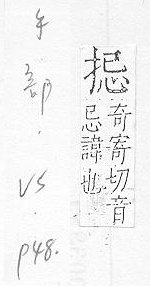 奇寄切音
忌諱也
手部.VS.p48.